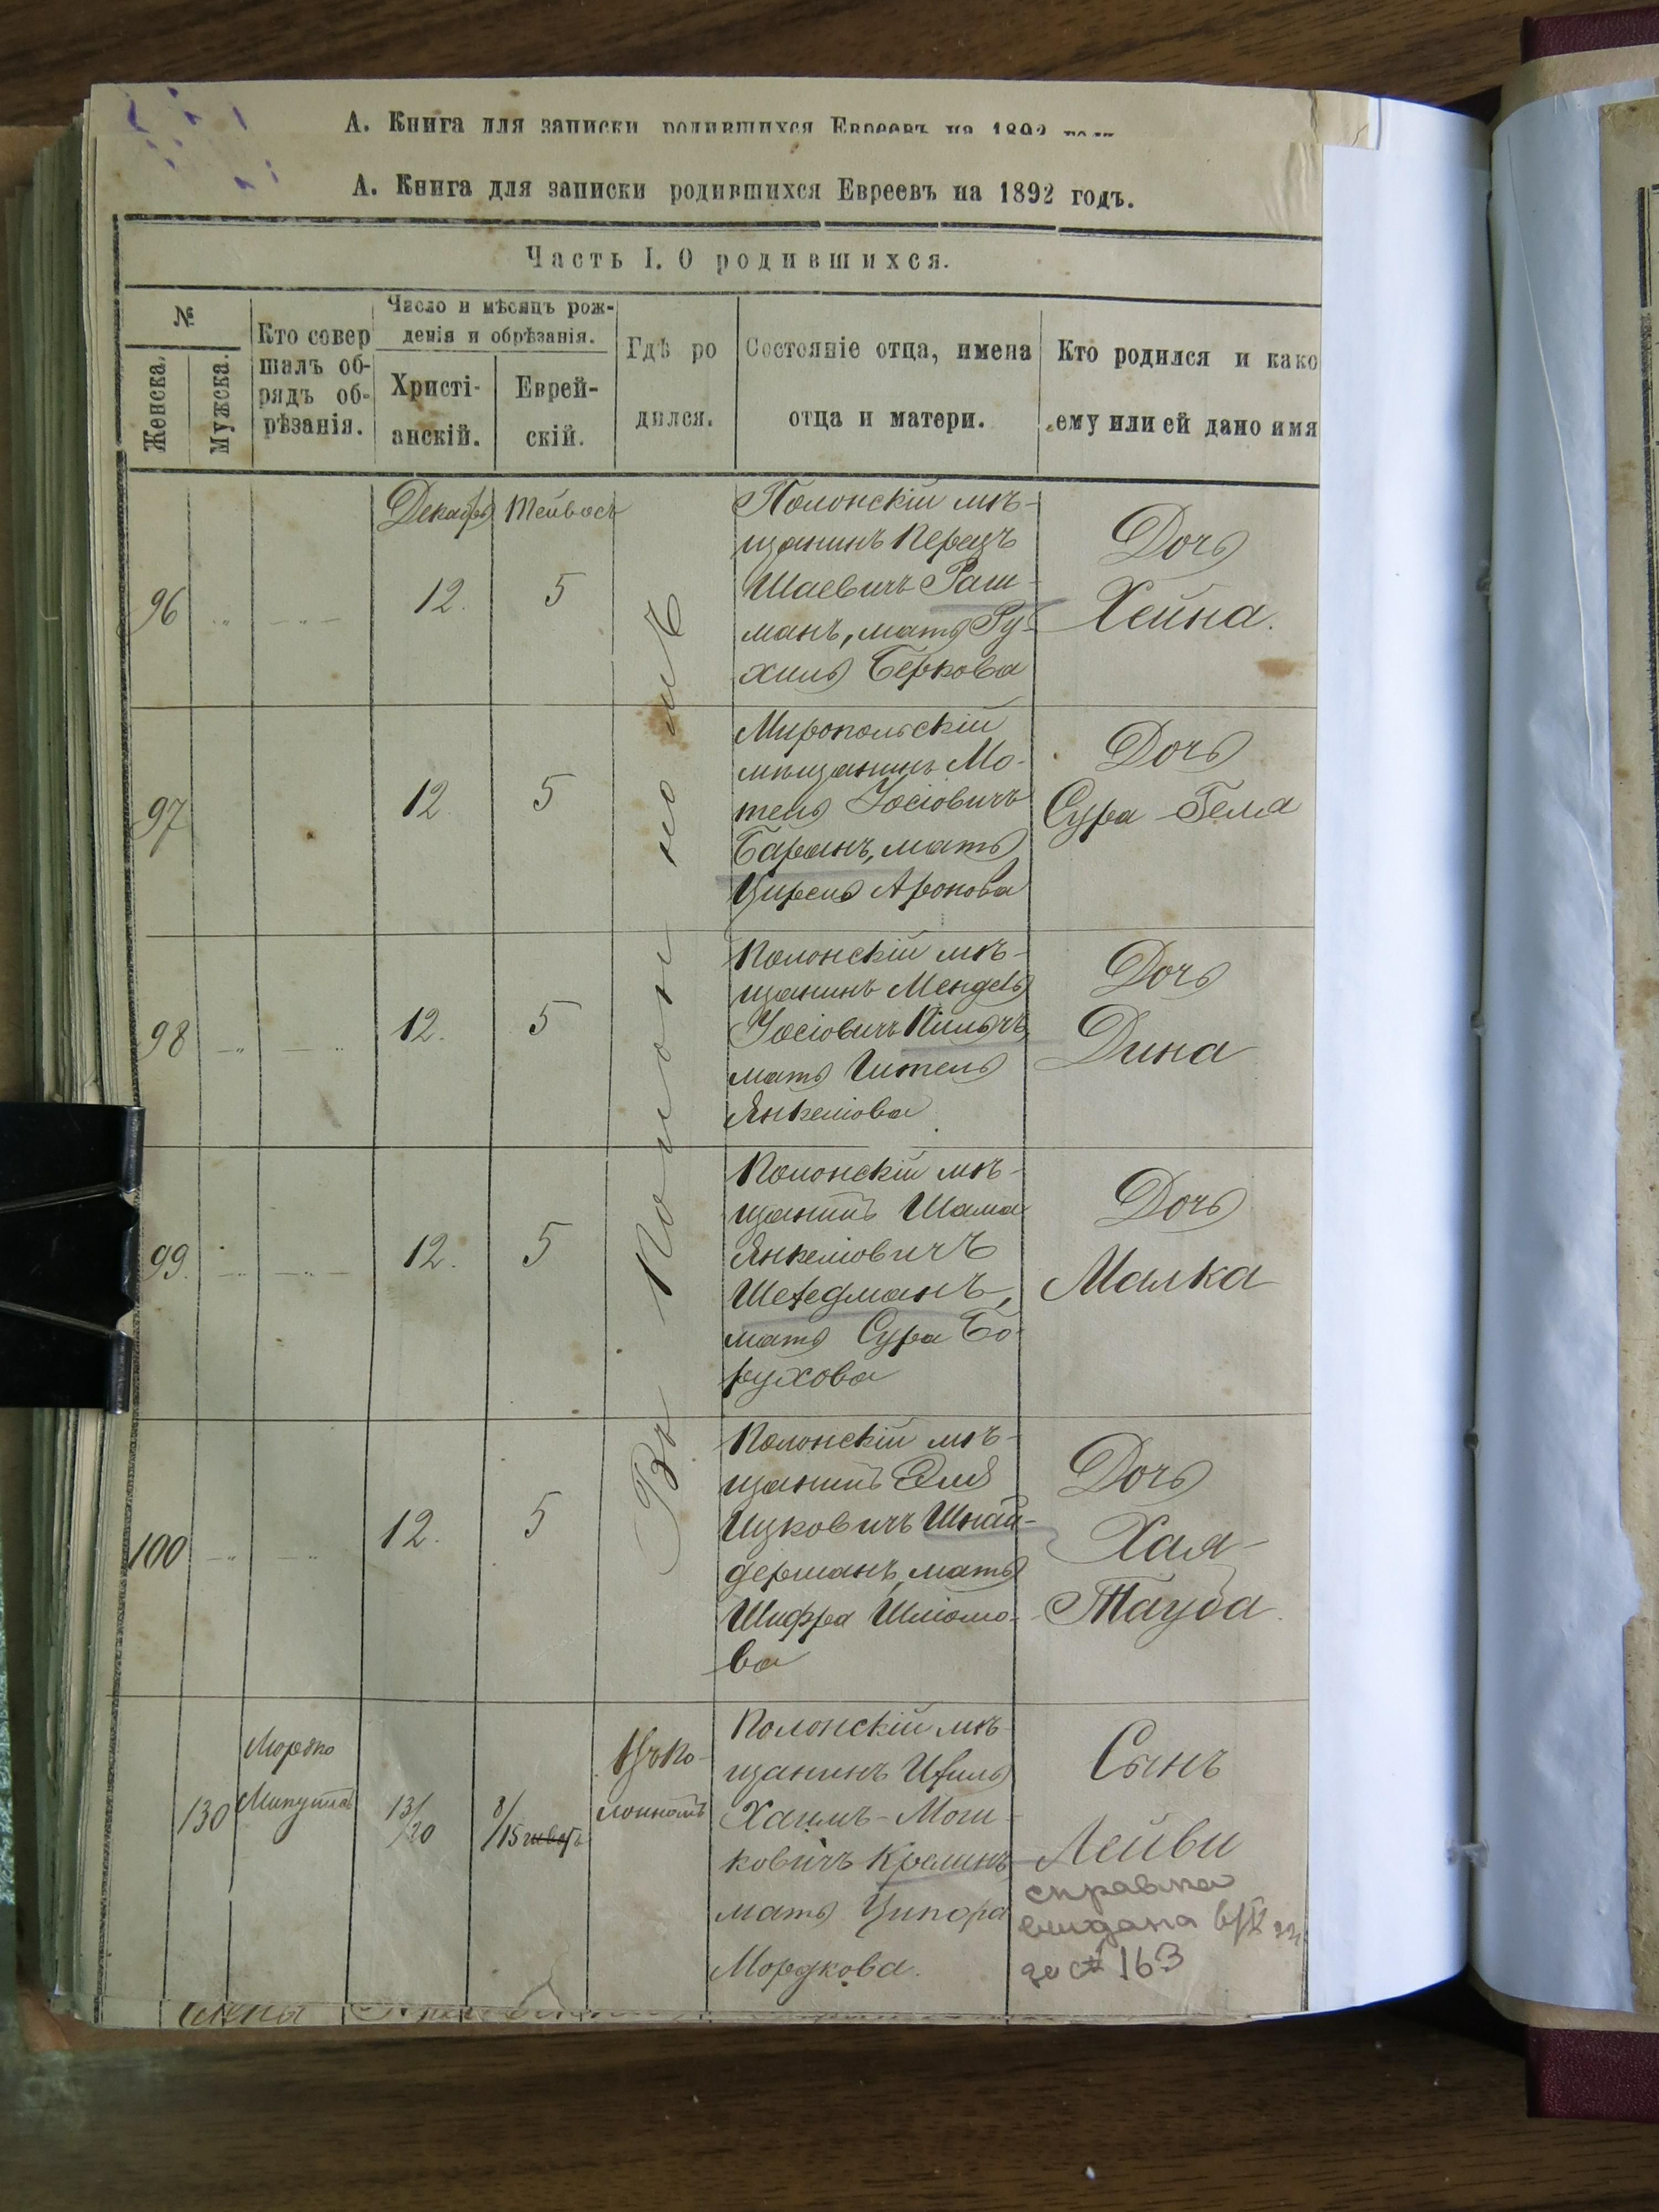 А. Книга для записки родившихся Евреевъ на 1892 годъ
А. Книга для записки родившихся Евреевъ на 1892 годъ.
Часть I. О родившихся.
№
Женска.
Мужска.
Кто совер
шалъ об-
рядъ об-
рѣзанія.
Число и мѣсяцъ рож-
денія и обрѣзанія.
Христі-
анскій.
Еврей-
скій.
Гдѣ ро
дился.
Состояніе отца, имена
отца и матери.
Кто родился и како
ему или ей дано имя
Декабрь
Тейвосъ
Въ Полонномъ
96
12.
5
Полонскій мѣ-
щанинъ Перецъ
Шаевичъ Раш-
манъ, мать Ру-
хиль Беркова
Дочь
Хейна.
97
12
5
Миропольскій
мѣщанинъ Мо-
тель Іосіовичъ
Баранъ, мать
Цирель Аронова
Дочь
Сура Гела
98
12.
5
Полонскій мѣ-
щанинъ Мендель
Іосіовичъ
мать Гитель
Янкеліова
Дочь
Дина
99.
12.
5
Полонскій мѣ-
щанинъ Шама
Янкеліовичъ
мать Сура Бо-
рухова
Дочь
Малка
100
12.
5
Полонскій мѣ-
щанинъ Эля
Ицковичъ Шнай-
дерманъ, мать
Шифра Шліомо-
ва
Дочь
Хая-
Тауба.
130
Мордко
13/
/20
8/
/15
Въ По-
лонномъ
Полонскій мѣ-
щанинъ
Хаимъ-Мош-
ковичъ
мать Ципора
Мордкова.
Сынъ
Лейви
справка
видана
за № 163